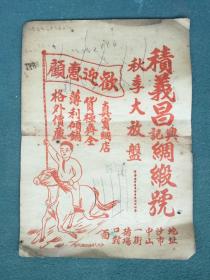 積義昌興記綢緞號
秋季大放盤
地址
沙市
中山
一街
擋場
口對
面
歡迎惠顧
真實綢店
貨極齊全
薄利傾銷
格外價廉